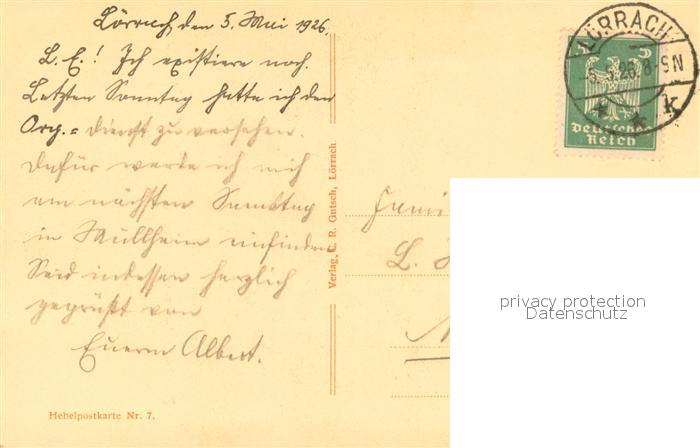 Lörrach den 5. Mai 1926.
L. E.! Ich existiere noch.
Letzten Sonntag hatte ich den
Org.= dienst zu versehen.
Dafür werde ich mich
am nächsten Samstag
in Müllheim einfinden
Seid indessen herzlich
gegrüßt von
Euerm Albert.
Hebelpostkarte Nr. 7.
Verlag C. R. Gutsch, Lörrach
LÖRRACH
5.5.26. 8-9N
* * k
5 5
Deutsches
Reich
Fami
L.
privacy protection
Datenschutz